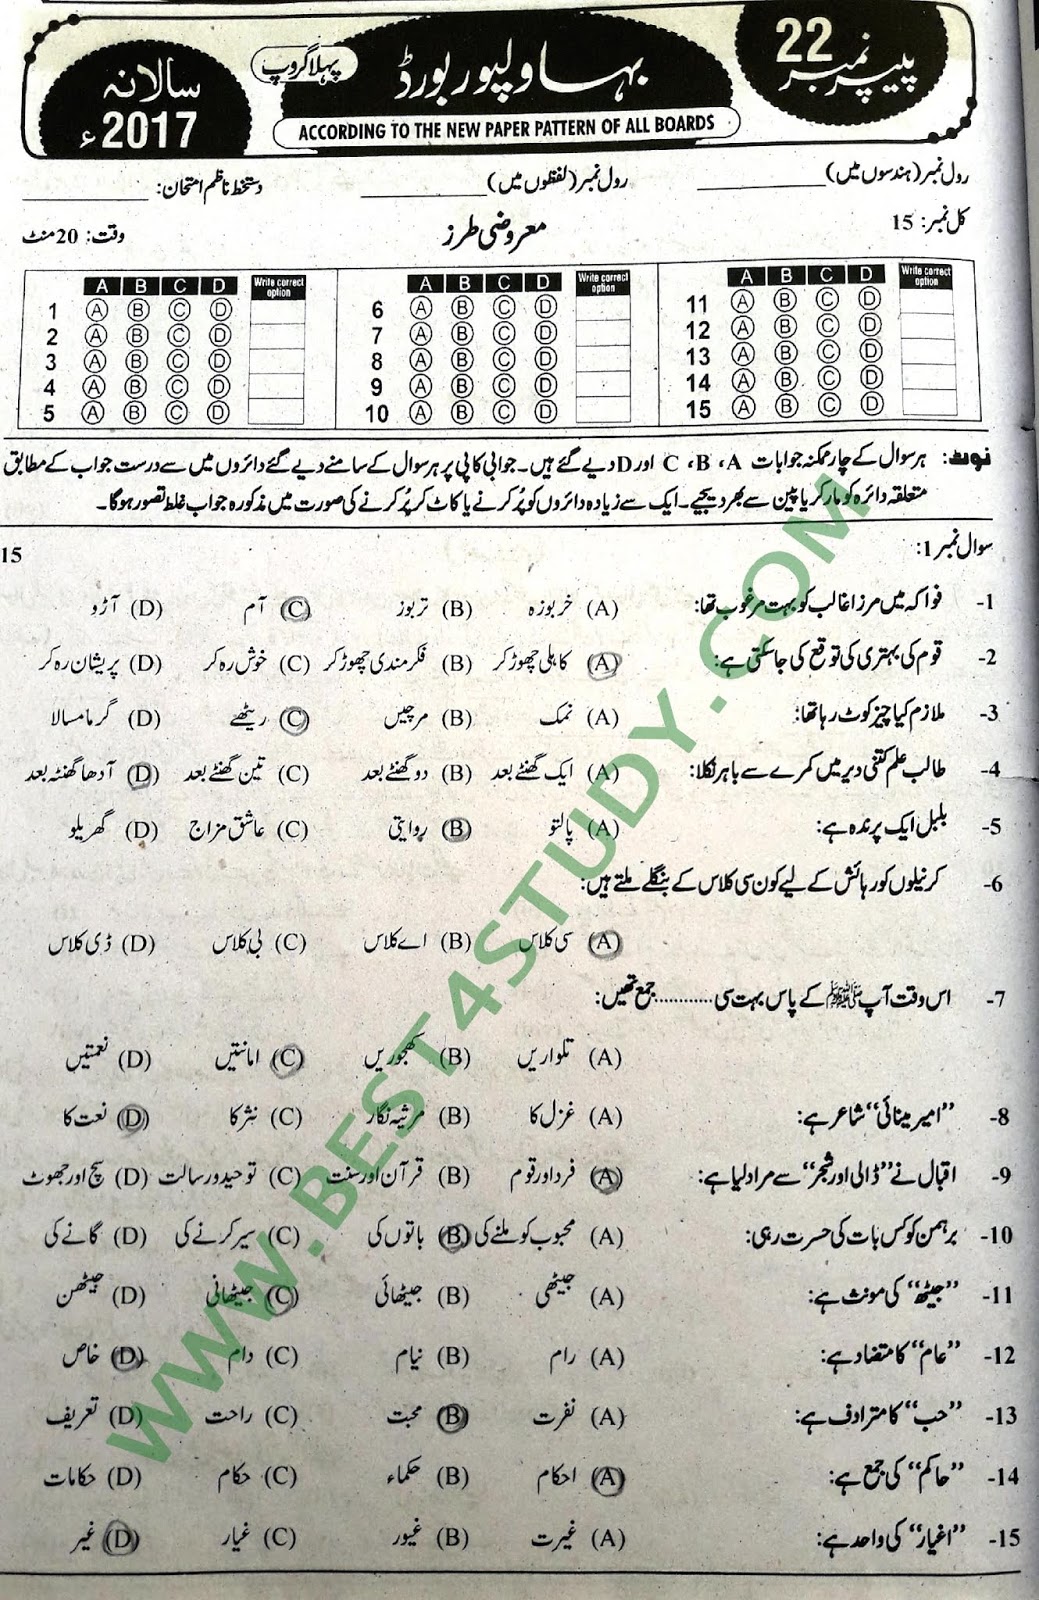 پیپر نمبر 22
بہاولپور بورڈ
پہلا گروپ
سالانہ 2017ء
ACCORDING TO THE NEW PAPER PATTERN OF ALL BOARDS
رول نمبر (ہندسوں میں) ____________ رول نمبر (لفظوں میں) ____________ دستخط ناظم امتحان: ____________
کل نمبر: 15 معروضی طرز وقت: 20 منٹ
A B C D Write correct option
1 A B C D
2 A B C D
3 A B C D
4 A B C D
5 A B C D
A B C D Write correct option
6 A B C D
7 A B C D
8 A B C D
9 A B C D
10 A B C D
A B C D Write correct option
11 A B C D
12 A B C D
13 A B C D
14 A B C D
15 A B C D
نوٹ: ہر سوال کے چار ممکنہ جوابات C ،B ،A اور D دیے گئے ہیں۔ جوابی کاپی پر ہر سوال کے سامنے دیے گئے دائروں میں سے درست جواب کے مطابق
متعلقہ دائرہ کو مارکر یا پین سے بھر دیجیے۔ ایک سے زیادہ دائروں کو پُر کرنے یا کاٹ کر پُر کرنے کی صورت میں مذکورہ جواب غلط تصور ہوگا۔
سوال نمبر 1: 15
1- فواکہ میں مرزا غالب کو بہت مرغوب تھا: (A) خربوزہ (B) تربوز (C) آم (D) آڑو
2- قوم کی بہتری کی توقع کی جا سکتی ہے: (A) کاہلی چھوڑ کر (B) فکر مندی چھوڑ کر (C) خوش رہ کر (D) پریشان رہ کر
3- ملازم کیا چیز کوٹ رہا تھا: (A) نمک (B) مرچیں (C) ریٹھے (D) گرما مسالا
4- طالب علم کتنی دیر میں کمرے سے باہر نکلا: (A) ایک گھنٹے بعد (B) دو گھنٹے بعد (C) تین گھنٹے بعد (D) آدھا گھنٹہ بعد
5- بلبل ایک پرندہ ہے: (A) پالتو (B) روایتی (C) عاشق مزاج (D) گھریلو
6- کرنیلوں کو رہائش کے لیے کون سی کلاس کے بنگلے ملتے ہیں:
(A) سی کلاس (B) اے کلاس (C) بی کلاس (D) ڈی کلاس
7- اس وقت آپ ﷺ کے پاس بہت سی ............ جمع تھیں:
(A) تلواریں (B) کھجوریں (C) امانتیں (D) نعمتیں
8- ”امیر مینائی“ شاعر ہے: (A) غزل کا (B) مرثیہ نگار (C) نثر کا (D) نعت کا
9- اقبال نے ”ڈالی اور شجر“ سے مراد لیا ہے: (A) فرد اور قوم (B) قرآن اور سنت (C) توحید و رسالت (D) سچ اور جھوٹ
10- برہمن کو کس بات کی حسرت رہی: (A) محبوب کو ملنے کی (B) باتوں کی (C) سیر کرنے کی (D) گانے کی
11- ”جیٹھ“ کی مونث ہے: (A) جیٹھی (B) جیٹھائی (C) جیٹھانی (D) جیٹھن
12- ”عام“ کا متضاد ہے: (A) رام (B) نیام (C) دام (D) خاص
13- ”حب“ کا مترادف ہے: (A) نفرت (B) محبت (C) راحت (D) تعریف
14- ”حاکم“ کی جمع ہے: (A) احکام (B) حکماء (C) حکام (D) حکامات
15- ”اغیار“ کی واحد ہے: (A) غیرت (B) غیور (C) غیار (D) غیر
WWW.BEST4STUDY.COM